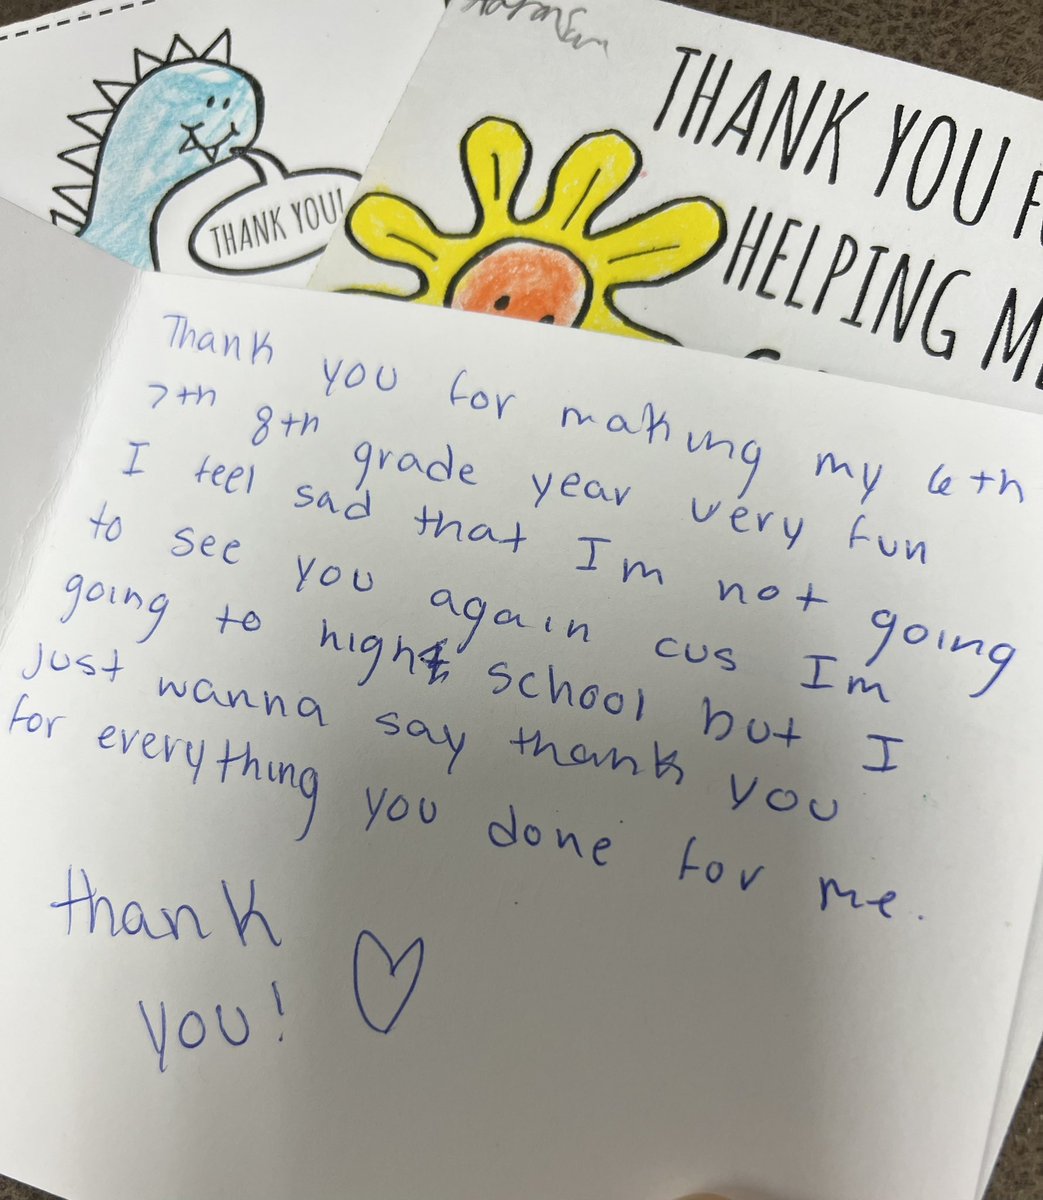 THANK YOU!
THANK YOU
HELPING
Thank you for making my 6th
7th 8th grade year very fun
I feel sad that Im not going
to see you again cus Im
going to high school but I
just wanna say thank you
for everything you done for me.
thank
you!